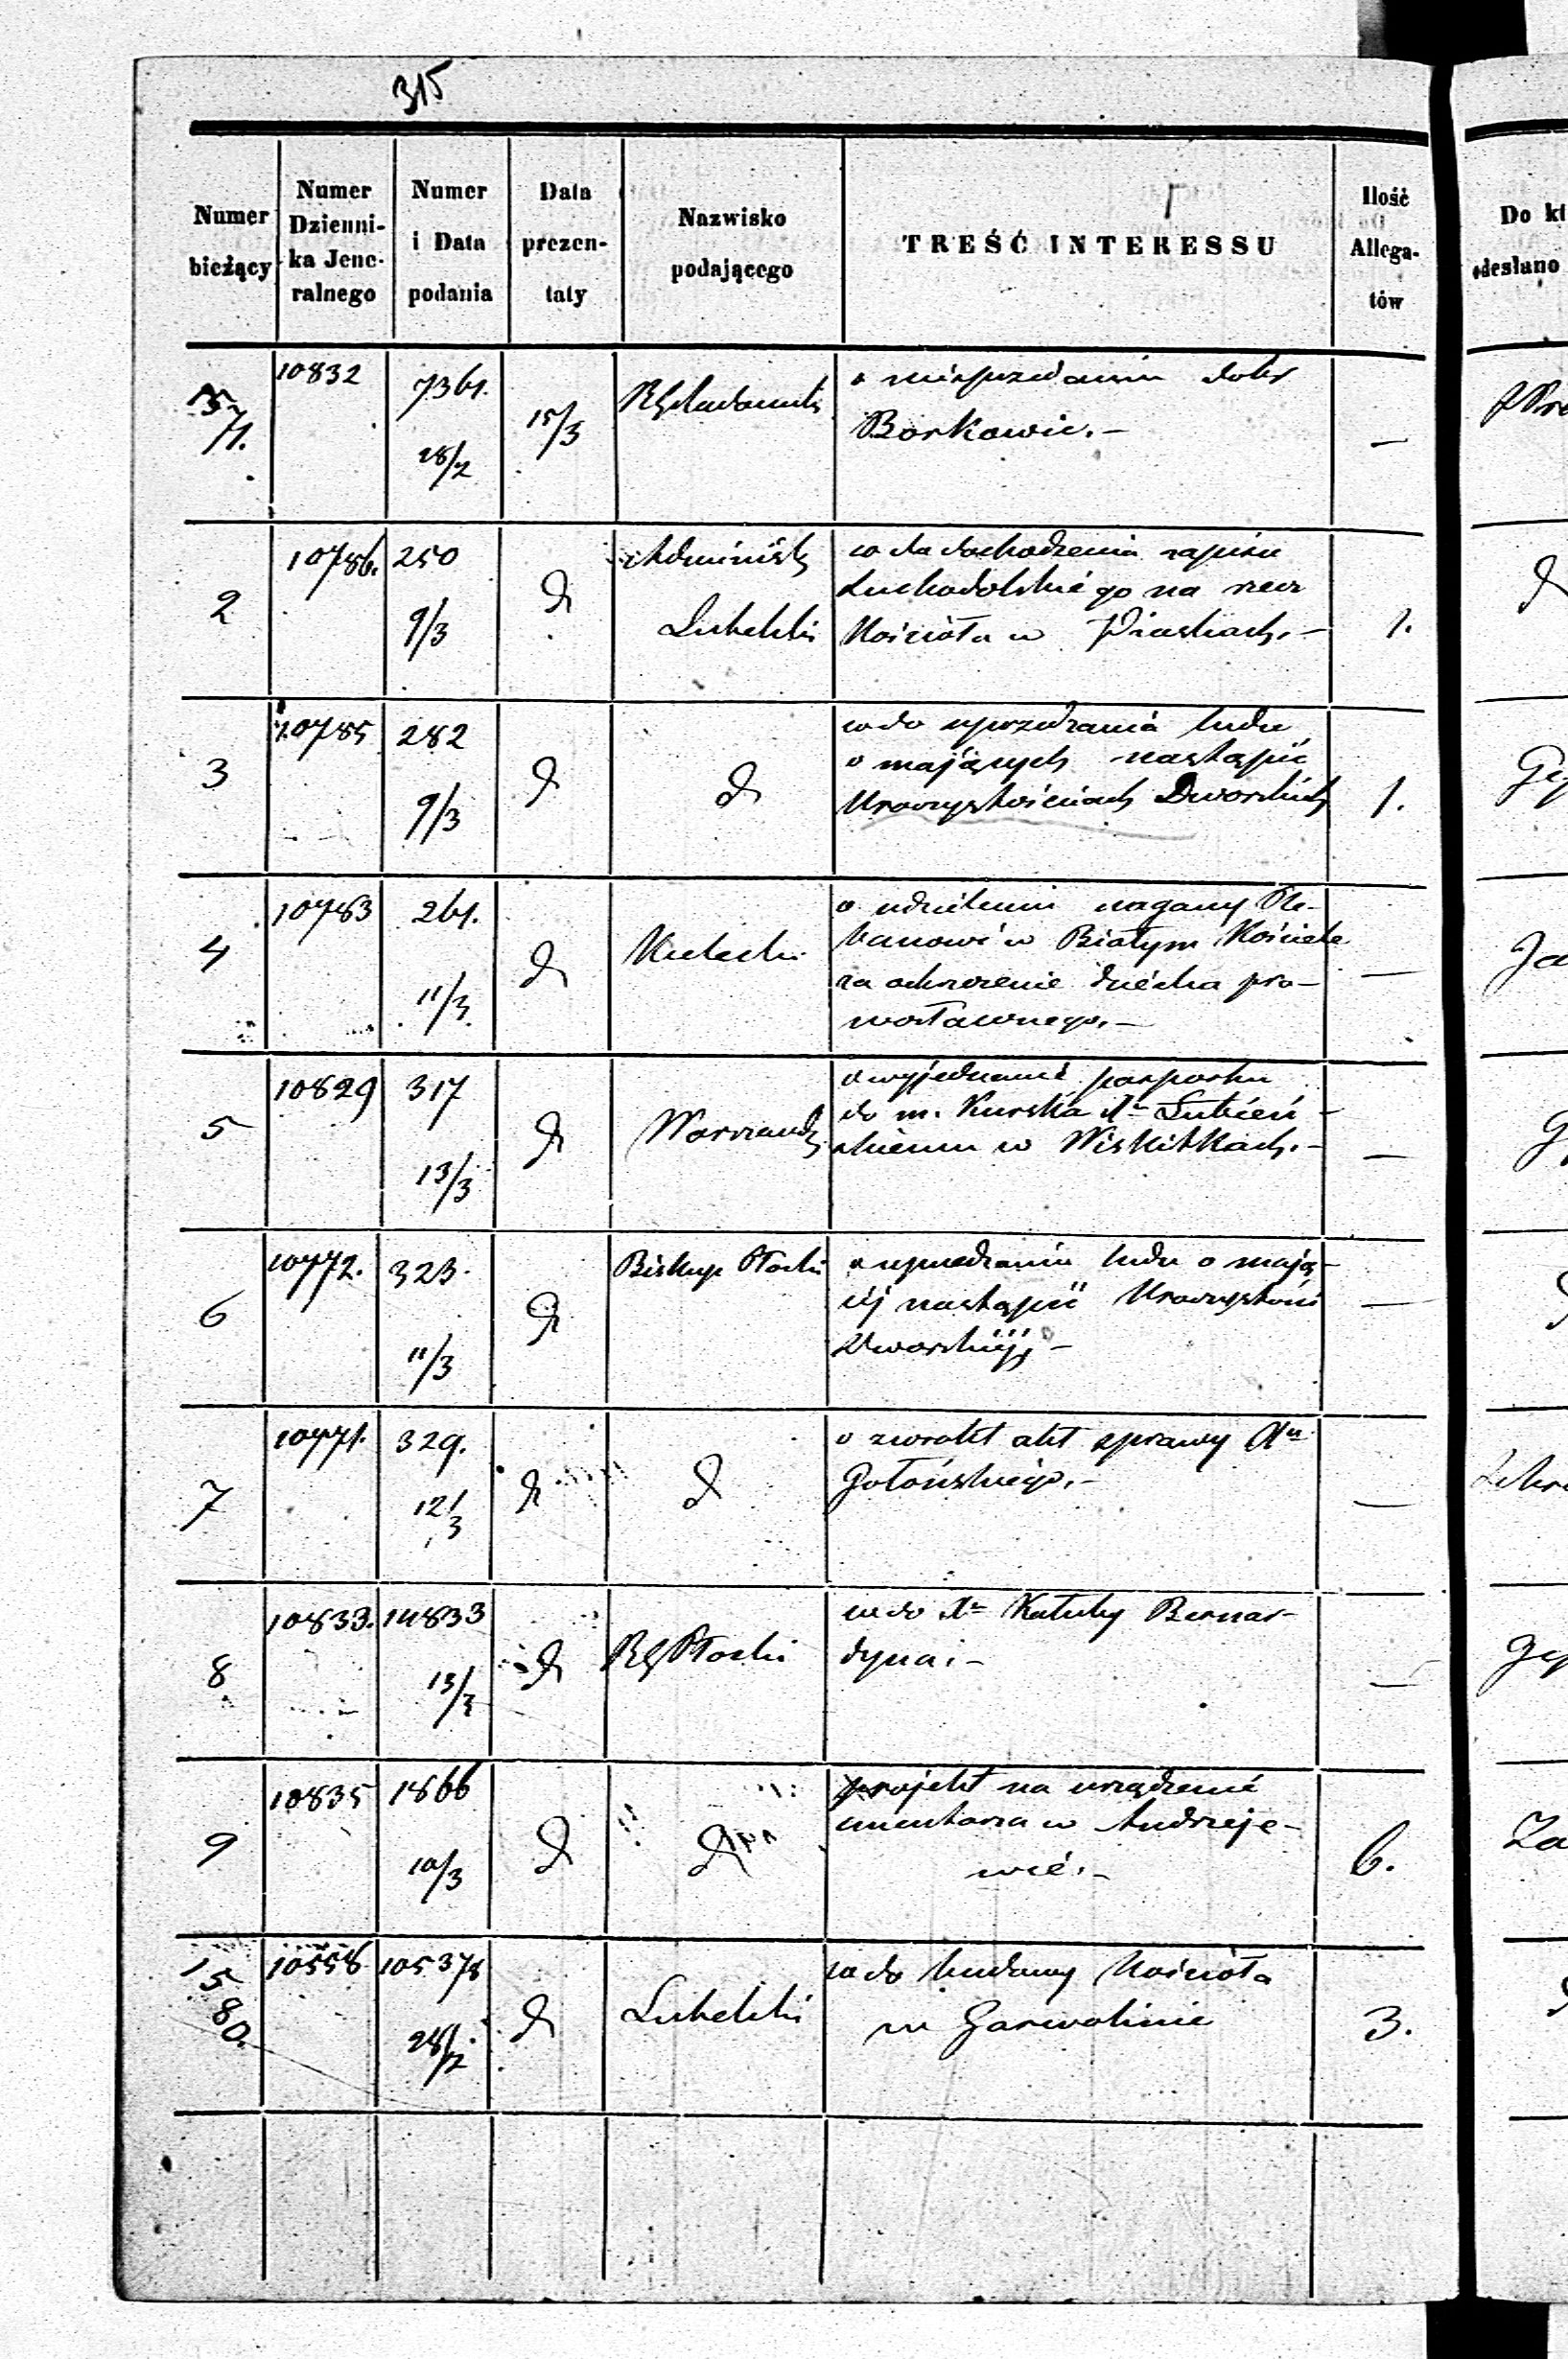 315
Numer bieżący
Numer Dzienni-ka Jene-ralnego
Numer i Data podania
Data prezen-taty
Nazwisko podającego
TREŚĆ INTERESSU
Ilość Allega-tów
Do kt
odesłano
1571. 10832 7361. 28/2 15/3 RG Radomski
o niesprzedawaniu dobr
Borkowic.— —
2 10786. 250 9/3 d Administr Lubelski
co do dochodzenia zapisu
Suchodolskiego na rzecz
Kościoła w Piaskach.— 1. d
3 10785 282 9/3 d d
co do uprzedzania ludu
o mających nastąpić
Uroczystościach Dworskich 1.
4 10783 261. 11/3 d Kielecki
o udzieleniu nagany Ple-
banowi w Białym Kościele
za ochrzczenie dziecka pra-
wosławnego.— —
5 10829 317 13/3 d Warszawski
o wyjednanie paszportu
do m. Kurska Xu Lubień-
skiemu w Wiskitkach.— —
6 10772. 323. 11/3 d Biskup Płocki
o uprzedzaniu ludu o mają-
cej nastąpić Uroczystości
Dworskiéj,— —
7 10771. 329. 12/3 d d
o zwrokt akt sprawy Xa
Gołońskiego.— —
8 10833. 14833 13/3 d RG Płocki
co do Xa Kałuby Bernar-
dyna.— —
9 10835 1866 10/3 d d
projekt na urządzenie
cmentarza w Andrzeje-
wie.— 6. Za
1580. 10558 105378 28/2 d Lubelski
co do budowy Kościoła
w Garwolinie 3.